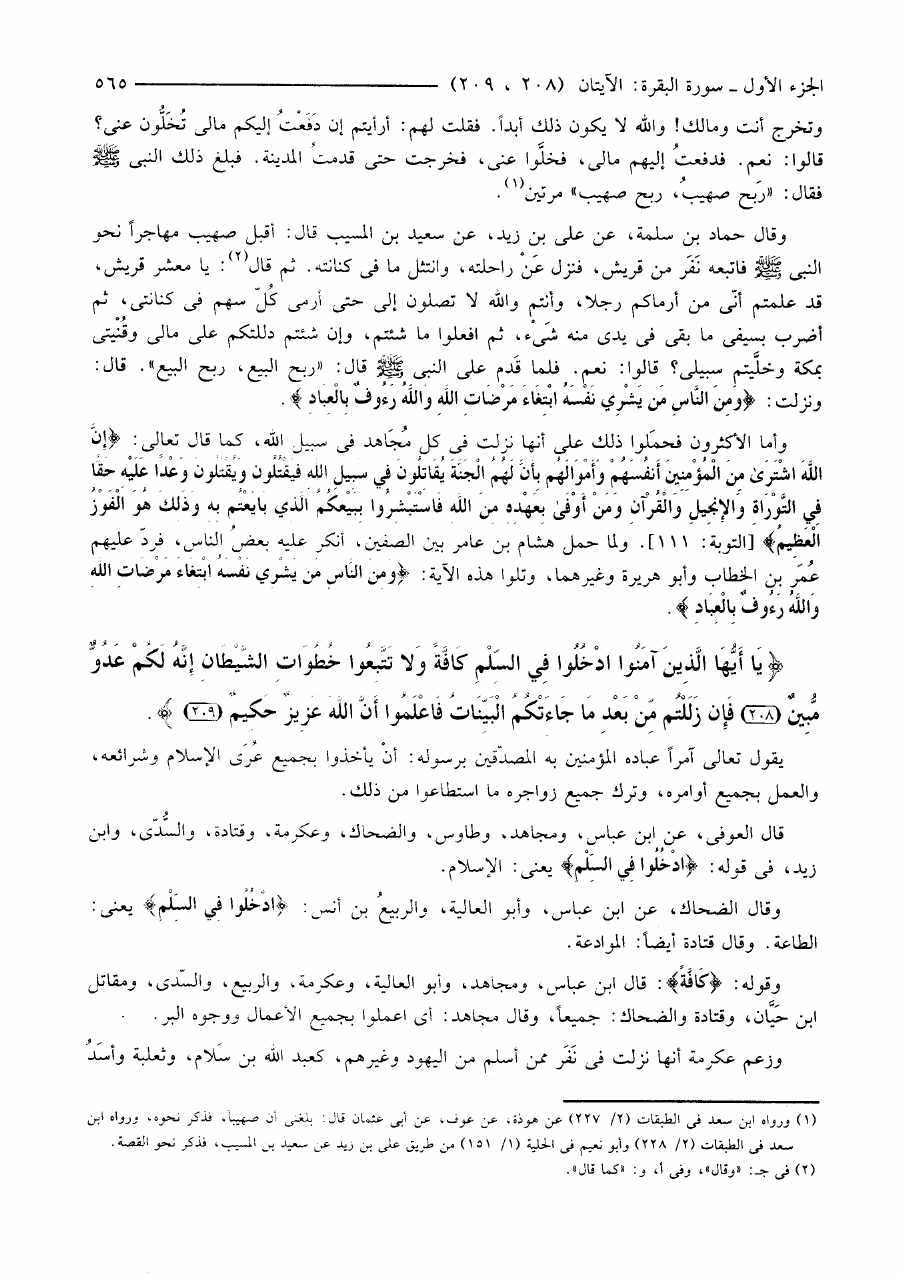 الجزء الأول ـ سورة البقرة: الآيتان (٢٠٨ ، ٢٠٩) ٥٦٥
وتخرج أنت ومالك! والله لا يكون ذلك أبداً. فقلت لهم: أرأيتم إن دَفَعْتُ إليكم مالى تُخَلُّون عنى؟
قالوا: نعم. فدفعتُ إليهم مالى، فخلَّوا عنى، فخرجت حتى قدمتُ المدينة. فبلغ ذلك النبى ﷺ
فقال: «ربَح صهيبُ، ربح صهيب» مرتين(١).
وقال حماد بن سلمة، عن على بن زيد، عن سعيد بن المسيب قال: أقبل صهيب مهاجراً نحو
النبى ﷺ فاتبعه نَفَر من قريش، فنزل عَنْ راحلته، وانتثل ما فى كنانته. ثم قال(٢): يا معشر قريش،
قد علمتم أنّى من أرماكم رجلا، وأنتم والله لا تصلون إلى حتى أرمى كُلّ سهم فى كنانتى، ثم
أضرب بسيفى ما بقى فى يدى منه شىْء، ثم افعلوا ما شئتم، وإن شئتم دللتكم على مالى وقُنْيتى
بمكة وخلَّيتم سبيلى؟ قالوا: نعم. فلما قَدم على النبى ﷺ قال: «ربح البيع، ربح البيع». قال:
ونزلت: ﴿وَمِنَ النَّاسِ مَن يَشْرِي نَفْسَهُ ابْتِغَاءَ مَرْضَاتِ اللَّهِ وَاللَّهُ رَءُوفٌ بِالْعِبَادِ﴾.
وأما الأكثرون فحمَلوا ذلك على أنها نزلت فى كل مُجَاهد فى سبيل الله، كما قال تعالى: ﴿إِنَّ
اللَّهَ اشْتَرَىٰ مِنَ الْمُؤْمِنِينَ أَنفُسَهُمْ وَأَمْوَالَهُم بِأَنَّ لَهُمُ الْجَنَّةَ يُقَاتِلُونَ فِي سَبِيلِ اللَّهِ فَيَقْتُلُونَ وَيُقْتَلُونَ وَعْدًا عَلَيْهِ حَقًّا
فِي التَّوْرَاةِ وَالإِنجِيلِ وَالْقُرْآنِ وَمَنْ أَوْفَىٰ بِعَهْدِهِ مِنَ اللَّهِ فَاسْتَبْشِرُوا بِبَيْعِكُمُ الَّذِي بَايَعْتُم بِهِ وَذَلِكَ هُوَ الْفَوْزُ
الْعَظِيمُ﴾ [التوبة: ١١١]. ولما حمل هشام بن عامر بين الصفين، أنكر عليه بعضُ الناس، فردّ عليهم
عُمَر بن الخطاب وأبو هريرة وغيرهما، وتلوا هذه الآية: ﴿وَمِنَ النَّاسِ مَن يَشْرِي نَفْسَهُ ابْتِغَاءَ مَرْضَاتِ اللَّهِ
وَاللَّهُ رَءُوفٌ بِالْعِبَادِ﴾.
﴿يَا أَيُّهَا الَّذِينَ آمَنُوا ادْخُلُوا فِي السِّلْمِ كَافَّةً وَلا تَتَّبِعُوا خُطُوَاتِ الشَّيْطَانِ إِنَّهُ لَكُمْ عَدُوٌّ
مُّبِينٌ (٢٠٨) فَإِن زَلَلْتُم مِّنْ بَعْدِ مَا جَاءَتْكُمُ الْبَيِّنَاتُ فَاعْلَمُوا أَنَّ اللَّهَ عَزِيزٌ حَكِيمٌ (٢٠٩)﴾.
يقول تعالى آمراً عباده المؤمنين به المصدّقين برسوله: أنْ يأخذوا بجميع عُرَى الإسلام وشرائعه،
والعمل بجميع أوامره، وترك جميع زواجره ما استطاعوا من ذلك.
قال العوفى، عن ابن عباس، ومجاهد، وطاوس، والضحاك، وعكرمة، وقتادة، والسُّدّى، وابن
زيد، فى قوله: ﴿ادْخُلُوا فِي السِّلْمِ﴾ يعنى: الإسلام.
وقال الضحاك، عن ابن عباس، وأبو العالية، والربيعُ بن أنس: ﴿ادْخُلُوا فِي السِّلْمِ﴾ يعنى:
الطاعة. وقال قتادة أيضاً: الموادعة.
وقوله: ﴿كَافَّةً﴾: قال ابن عباس، ومجاهد، وأبو العالية، وعكرمة، والربيع، والسّدى، ومقاتل
ابن حَيَّان، وقتادة والضحاك: جميعاً، وقال مجاهد: أى اعملوا بجميع الأعمال ووجوه البر.
وزعم عكرمة أنها نزلت فى نَفَر ممن أسلم من اليهود وغيرهم، كعبد الله بن سَلام، وثعلبة وأسَدُ
(١) ورواه ابن سعد فى الطبقات (٢/ ٢٢٧) عن هوذة، عن عوف، عن أبى عثمان قال: بلغنى أن صهيباً، فذكر نحوه، ورواه ابن
سعد فى الطبقات (٢/ ٢٢٨) وأبو نعيم فى الحلية (١/ ١٥١) من طريق على بن زيد عن سعيد بن المسيب، فذكر نحو القصة.
(٢) فى جـ: «وقال»، وفى أ، و: «كما قال».